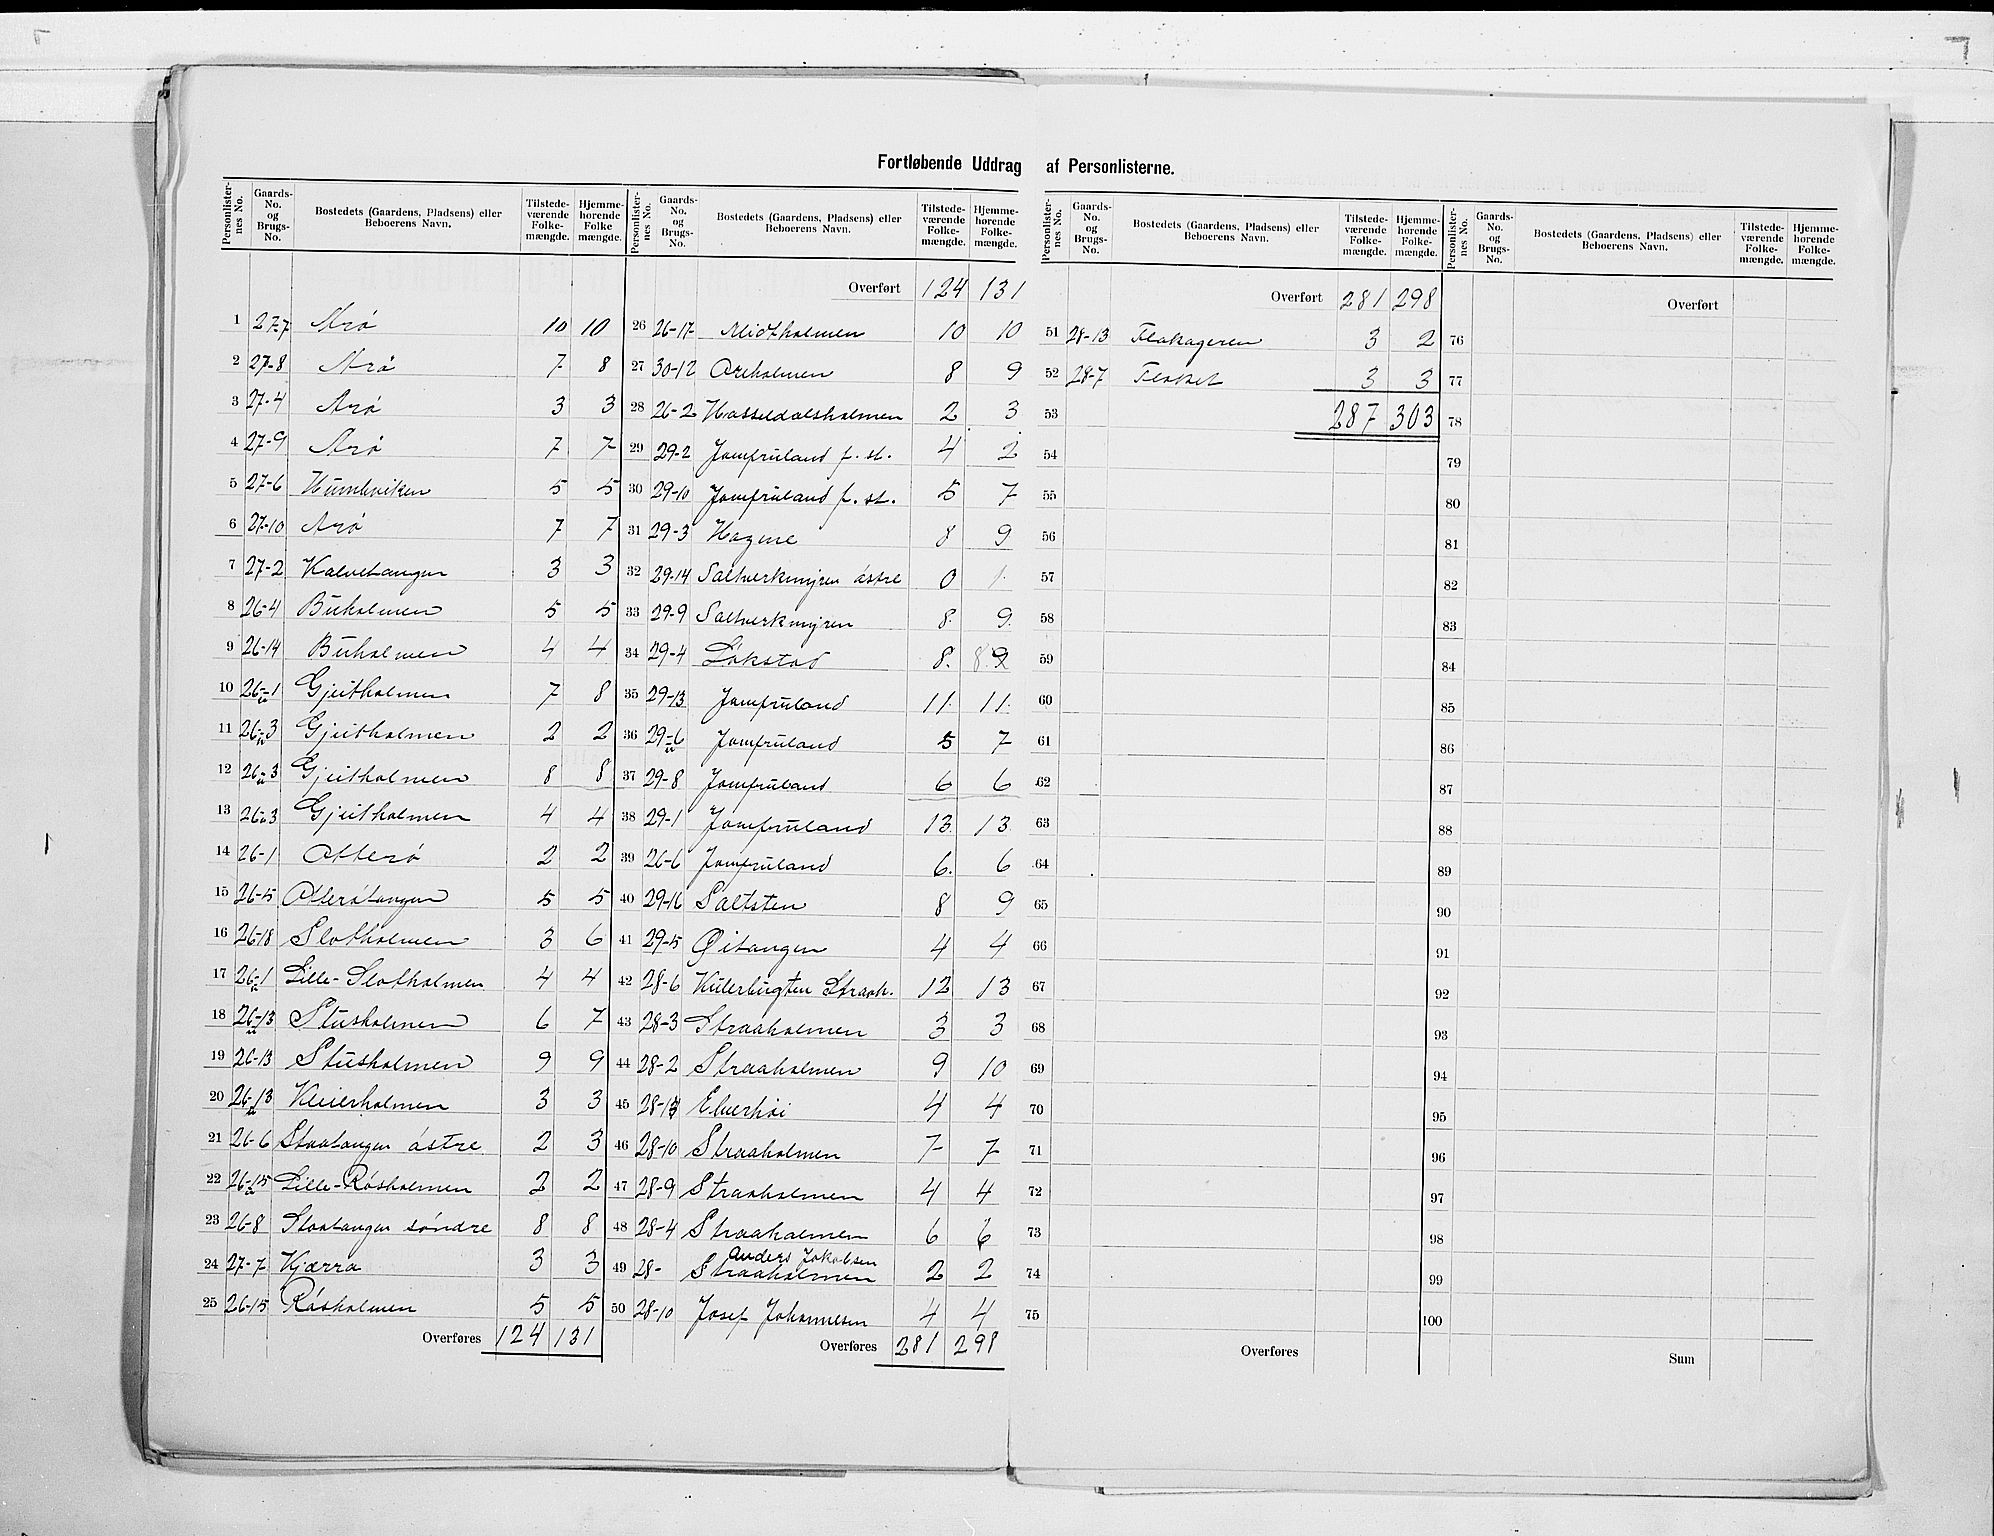 Fortløbende Uddrag af Personlisterne.
Personlisternes No. Gaards-No. og Brugs-No. Bostedets (Gaardens, Pladsens) eller Beboerens Navn. Tilstedeværende Folkemængde. Hjemmehørende Folkemængde.
1 27-7 Arø 10 10
2 27-8 Arø 7 8
3 27-4 Arø 3 3
4 27-9 Arø 7 7
5 27-6 Humleviken 5 5
6 27-10 Arø 7 7
7 27-2 Kalvetangen 3 3
8 26-4 Buholmen 5 5
9 26-14 Buholmen 4 4
10 26-1 Gjeitholmen 7 8
11 26-3 Gjeitholmen 2 2
12 26-3 Gjeitholmen 8 8
13 26-3 Gjeitholmen 4 4
14 26-1 Otterø 2 2
15 26-5 Otterøtangen 5 5
16 26-18 Slotholmen 3 6
17 26-1 Lille-Slotholmen 4 4
18 26-13 Stusholmen 6 7
19 26-13 Stusholmen 9 9
20 26-13 Kleierholmen 3 3
21 26-6 Staatangen østre 2 3
22 26-15 Lille-Røsholmen 2 2
23 26-8 Staatangen søndre 8 8
24 27-7 Kjærra 3 3
25 26-15 Røsholmen 5 5
Overføres 124 131
Personlisternes No. Gaards-No. og Brugs-No. Bostedets (Gaardens, Pladsens) eller Beboerens Navn. Tilstedeværende Folkemængde. Hjemmehørende Folkemængde.
Overført 124 131
26 26-17 Midtholmen 10 10
27 30-12 Areholmen 8 9
28 26-2 Hasseldalsholmen 2 3
29 29-2 Jomfruland f. st. 4 2
30 29-10 Jomfruland f. st. 5 7
31 29-3 Hagene 8 9
32 29-14 Saltverkmyren østre 0 1
33 29-9 Saltverkmyren 8 9
34 29-4 Løkstad 8 9
35 29-13 Jomfruland 11 11
36 29-6 Jomfruland 5 7
37 29-8 Jomfruland 6 6
38 29-1 Jomfruland 13 13
39 26-6 Jomfruland 6 6
40 29-16 Saltsten 8 9
41 29-5 Øitangen 4 4
42 28-6 Kilerbugten Straah. 12 13
43 28-3 Straaholmen 3 3
44 28-2 Straaholmen 9 10
45 28-13 Elverhøi 4 4
46 28-10 Straaholmen 7 7
47 28-9 Straaholmen 4 4
48 28-4 Straaholmen 6 6
Anders Jakobsen
49 28- Straaholmen 2 2
50 28-10 Josef Johannesen 4 4
Overføres 281 298
Personlisternes No. Gaards-No. og Brugs-No. Bostedets (Gaardens, Pladsens) eller Beboerens Navn. Tilstedeværende Folkemængde. Hjemmehørende Folkemængde.
Overført 281 298
51 28-13 Flakageren 3 2
52 28-7 Flaket 3 3
53 287 303
54
55
56
57
58
59
60
61
62
63
64
65
66
67
68
69
70
71
72
73
74
75
Overføres
Personlisternes No. Gaards-No. og Brugs-No. Bostedets (Gaardens, Pladsens) eller Beboerens Navn. Tilstedeværende Folkemængde. Hjemmehørende Folkemængde.
Overført
76
77
78
79
80
81
82
83
84
85
86
87
88
89
90
91
92
93
94
95
96
97
98
99
100
Sum